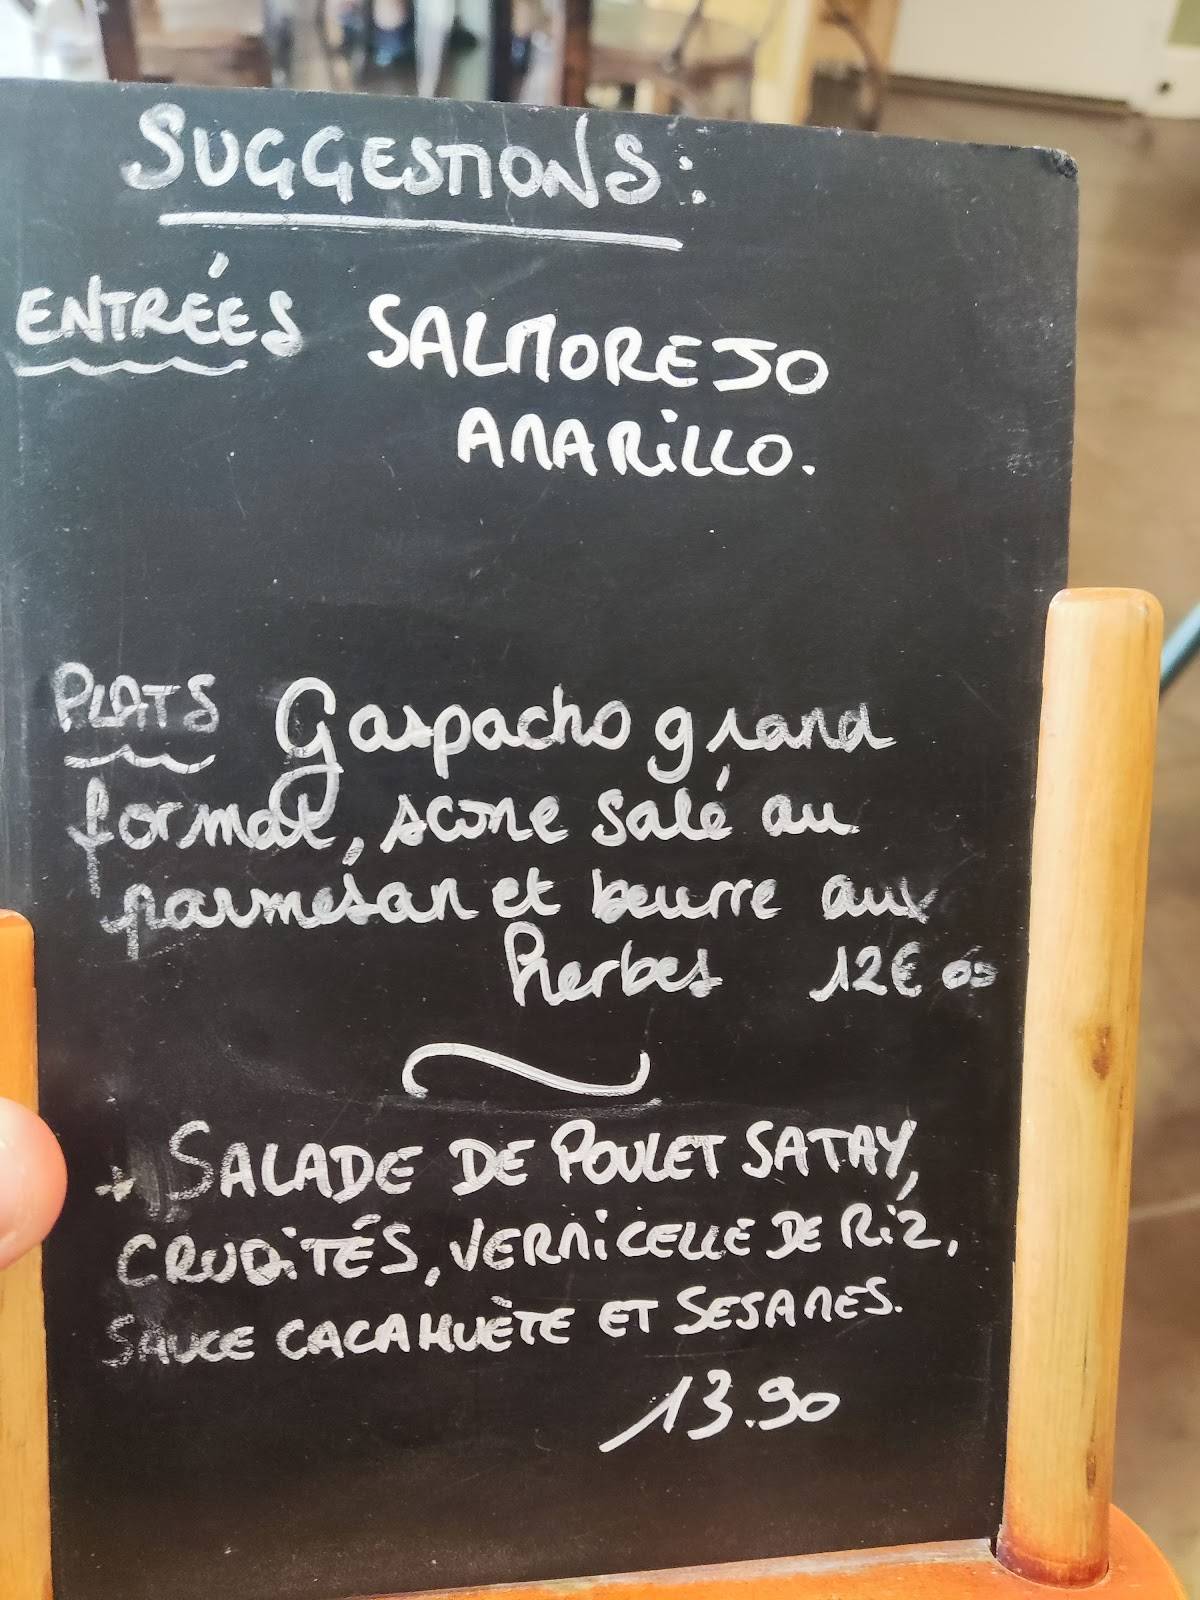 SUGGESTIONS :
ENTRÉES SALMOREJO
AMARILLO.
PLATS Gaspacho grand
format, scone salé au
parmesan et beurre aux
herbes 12€
+ SALADE DE POULET SATAY,
CRUDITÉS, VERMICELLE DE RIZ,
SAUCE CACAHUÈTE ET SESAMES.
13.90